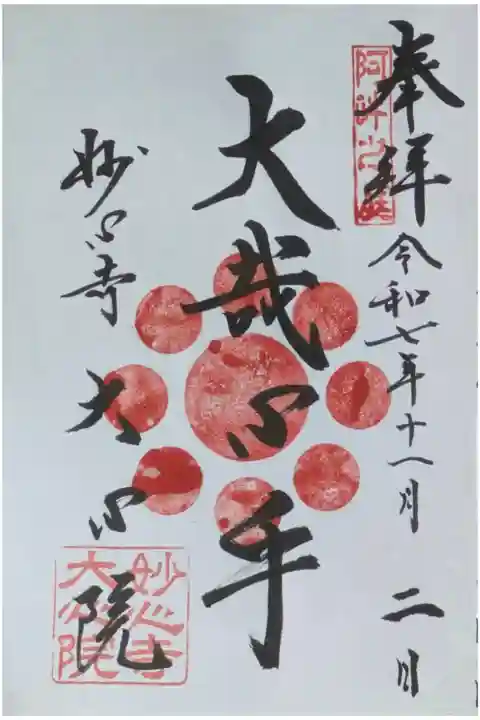 奉拝
阿吽之庭
令和七年十一月 二日
大哉心乎
妙心寺
大心院
妙心寺
大心院